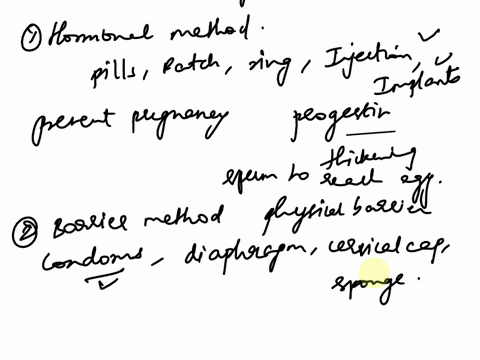 ① Hormonal method.
pills, Patch, ring, Injection,
Implants
prevent pregnancy progestin
thickening
sperm to reach egg.
② Barrier method physical barrier
Condoms, diaphragm, cervical cap,
sponge.